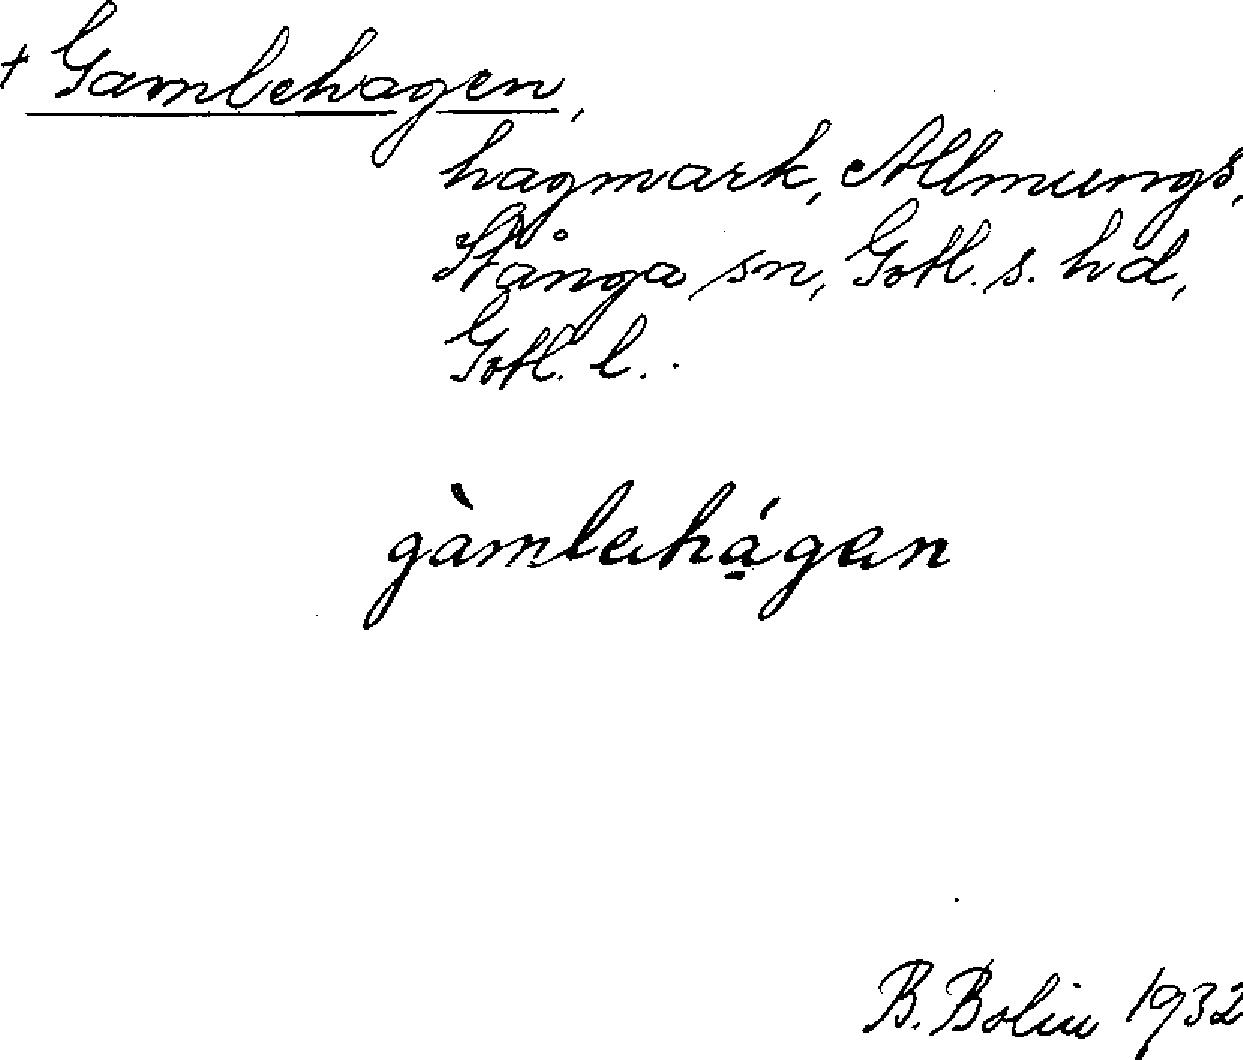 + Gamlehagen,
hagmark, Allmungs,
Stånga sn, Gotl. s. hd,
Gotl. l.
gàmlehá̱gen
B. Bolin 1932